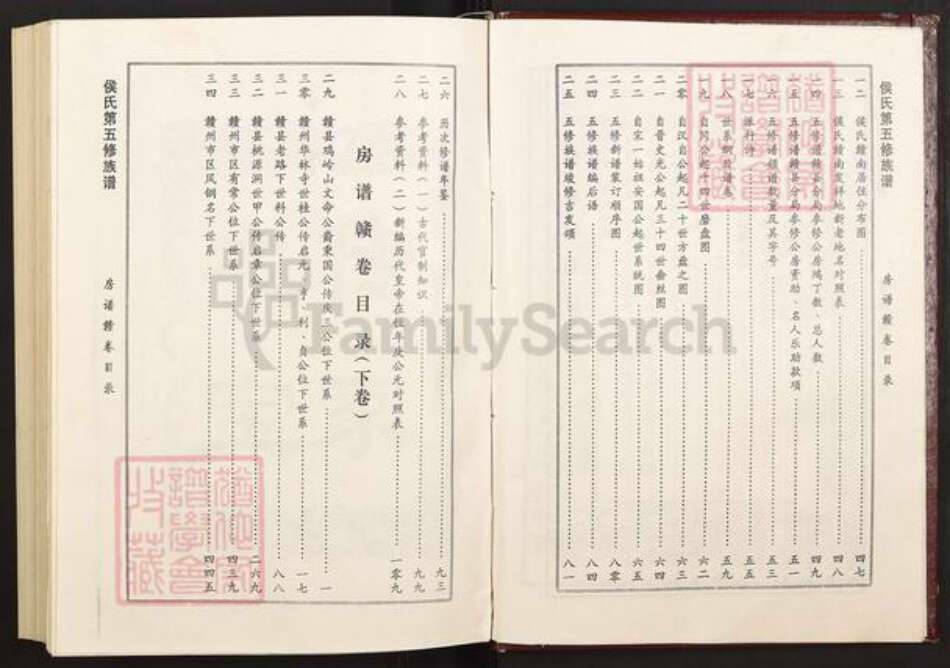 侯氏第五修族谱
房谱赣卷目录
一二 侯氏赣南居住分布图 四七
一三 侯氏赣南发祥地新老地名对照表 四八
一四 五修谱赣县分局参修公房鸿丁数、总人数 四九
一五 五修谱赣县分局参修公房资助、名人乐助款项 五一
一六 五修谱领谱数量及其字号 五三
一七 派行诗 五五
一八 世系纲目谱卷 五九
一九 自冈公起十四世磨盘图 六二
二零 自汉自公起凡二十世方盘之图 六三
二一 自晋史光公起凡三十四世垂丝图 六四
二二 自宋一始祖安国公起世系统图 六五
二三 五修新谱装订顺序图 八零
二四 五修族谱编后语 八四
二五 五修族谱竣修吉发颂 八一
二六 历次修谱年鉴 九三
二七 参考资料（一）古代官制知识 九九
二八 参考资料（二）新编历代皇帝在位年次公元对照表 一零九
房谱赣卷目录（下卷）
二九 赣县鸡岭山文命公裔秉国公传庆三公位下世系 一
三零 赣州华林寺世桂公传启元、亨、利、贞公位下世系 一七
三一 赣县老路下世科公传 八八
三二 赣县桃源洞世甲公传启章公位下世系 二六九
三三 赣州市区有常公位下世系 四三九
三四 赣州市区凤钢名下世系 四四五
侯氏第五修族谱
房谱赣卷目录
FamilySearch